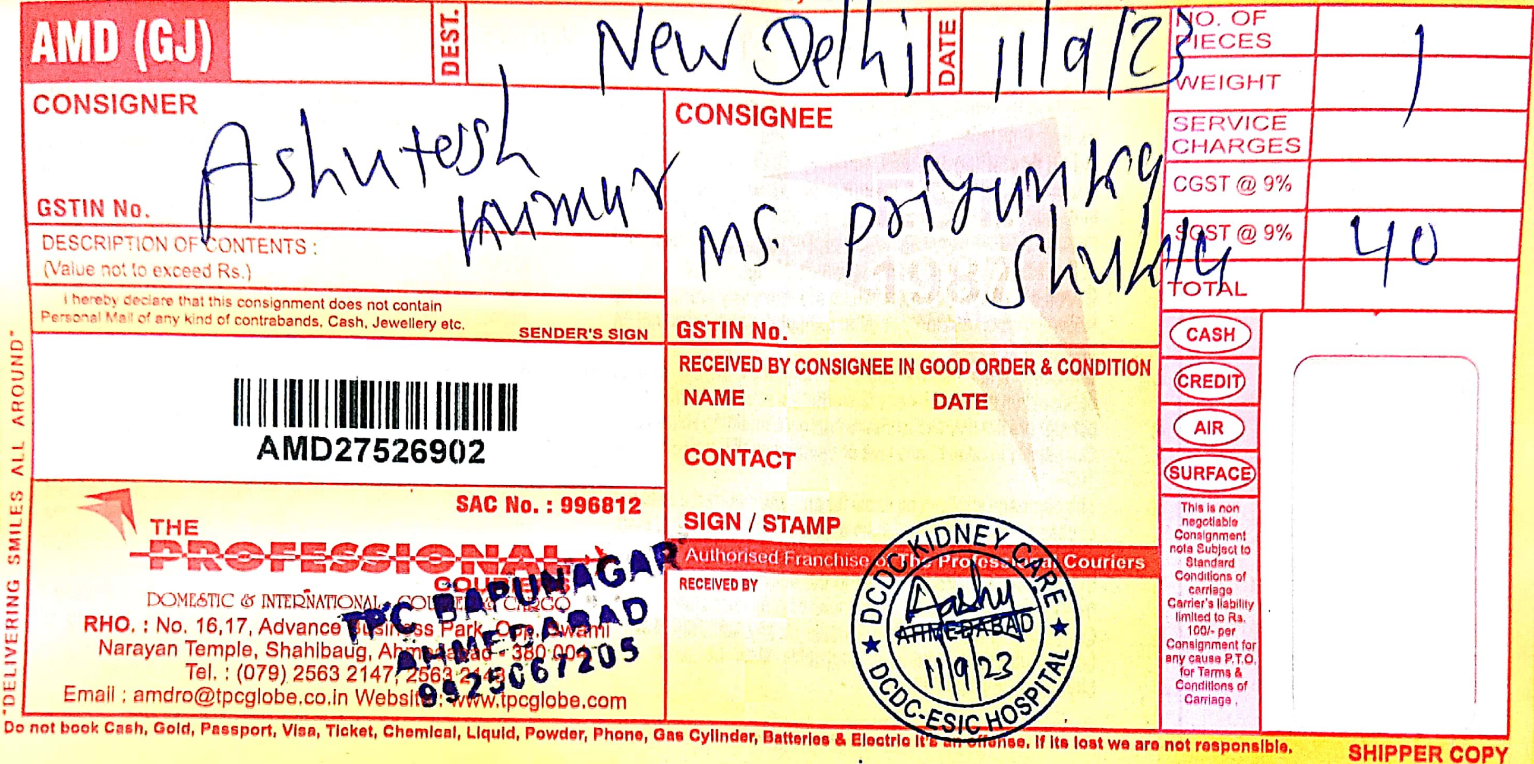 AMD (GJ)
DEST. New Delhi
DATE 11/9/23
NO. OF PIECES 1
WEIGHT
SERVICE CHARGES
CGST @ 9%
SGST @ 9% 40
TOTAL
CONSIGNER
Ashutosh
kumar
GSTIN No.
DESCRIPTION OF CONTENTS :
(Value not to exceed Rs.)
I hereby declare that this consignment does not contain
Personal Mail of any kind of contrabands, Cash, Jewellery etc.
SENDER'S SIGN
CONSIGNEE
MS. Priyanka
Shukla
GSTIN No.
"DELIVERING SMILES ALL AROUND"
AMD27526902
RECEIVED BY CONSIGNEE IN GOOD ORDER & CONDITION
NAME DATE
CONTACT
SIGN / STAMP
Authorised Franchise of The Professional Couriers
RECEIVED BY
CASH
CREDIT
AIR
SURFACE
This is non
negotiable
Consignment
note Subject to
Standard
Conditions of
carriage
Carrier's liability
limited to Rs.
100/- per
Consignment for
any cause P.T.O.
for Terms &
Conditions of
Carriage .
SAC No. : 996812
THE
PROFESSIONAL
COURIERS
DOMESTIC & INTERNATIONAL COURIER & CARGO
RHO. : No. 16,17, Advance Business Park, Opp. Swami
Narayan Temple, Shahibaug, Ahmedabad - 380 004
Tel. : (079) 2563 2147, 2563
Email : amdro@tpcglobe.co.in Website : www.tpcglobe.com
TPC BAPUNAGAR
AHMEDABAD
9925067205
DCDC KIDNEY CARE
AHMEDABAD
11/9/23
DCDC-ESIC HOSPITAL
Do not book Cash, Gold, Passport, Visa, Ticket, Chemical, Liquid, Powder, Phone, Gas Cylinder, Batteries & Electric It's an offense. If its lost we are not responsible.
SHIPPER COPY